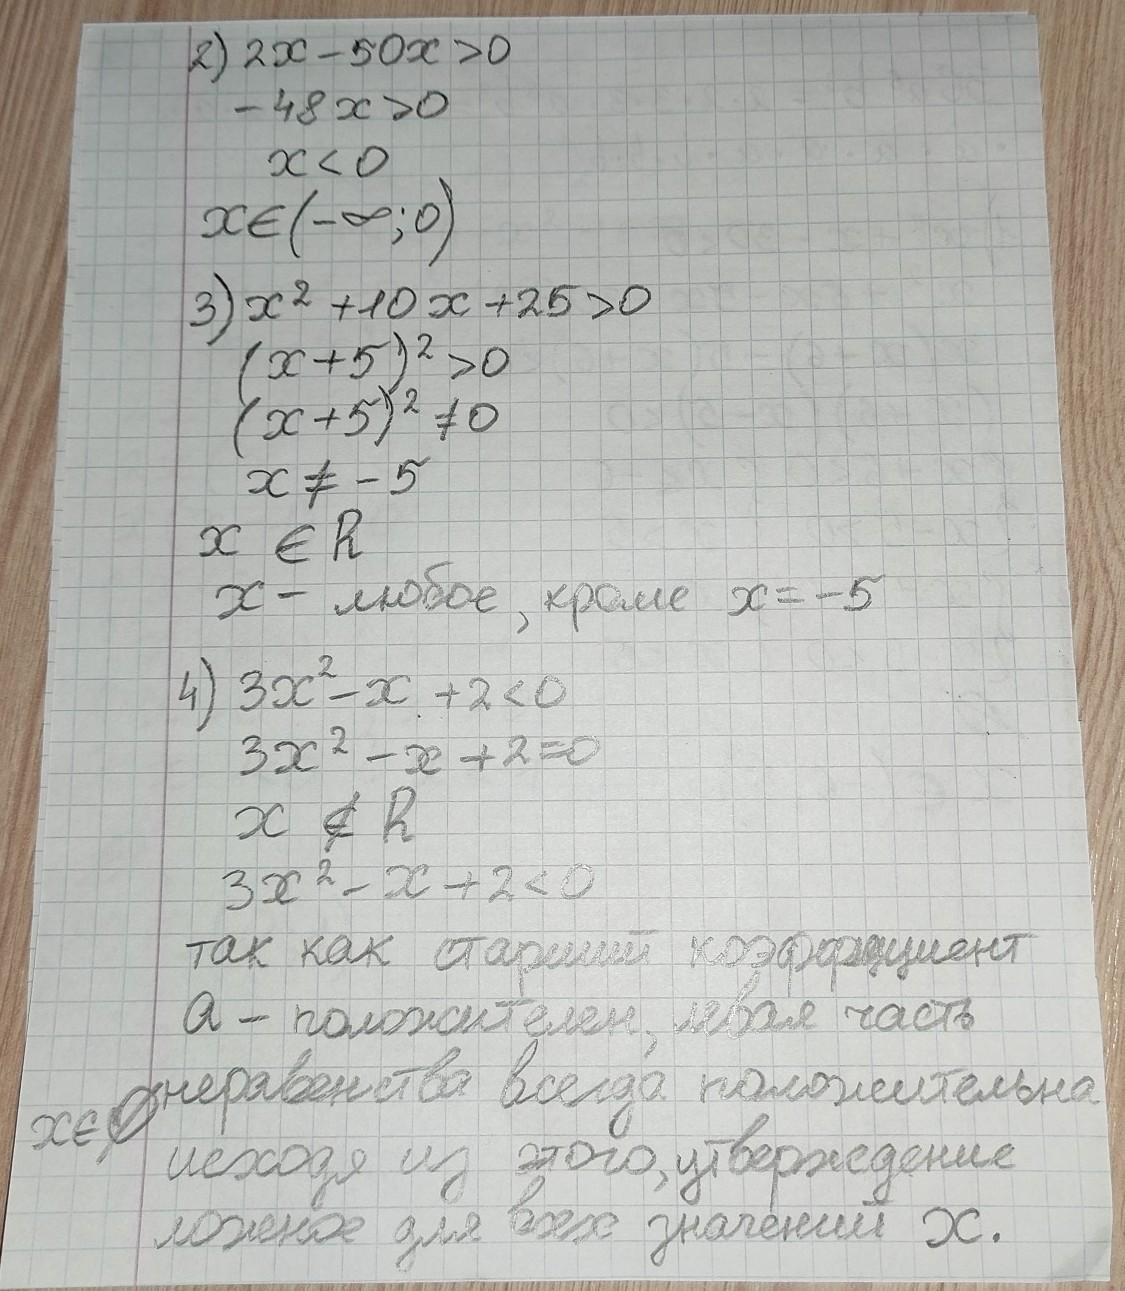 2) 2x - 50x > 0
- 48x > 0
x < 0
x ∈ (-∞; 0)
3) x² + 10x + 25 > 0
(x + 5)² > 0
(x + 5)² ≠ 0
x ≠ - 5
x ∈ R
x - любое, кроме x = -5
4) 3x² - x + 2 < 0
3x² - x + 2 = 0
x ∉ R
3x² - x + 2 < 0
так как старший коэффициент
a - положителен, левая часть
неравенства всегда положительна
x ∈ ∅
исходя из этого, утверждение
ложное для всех значений x.